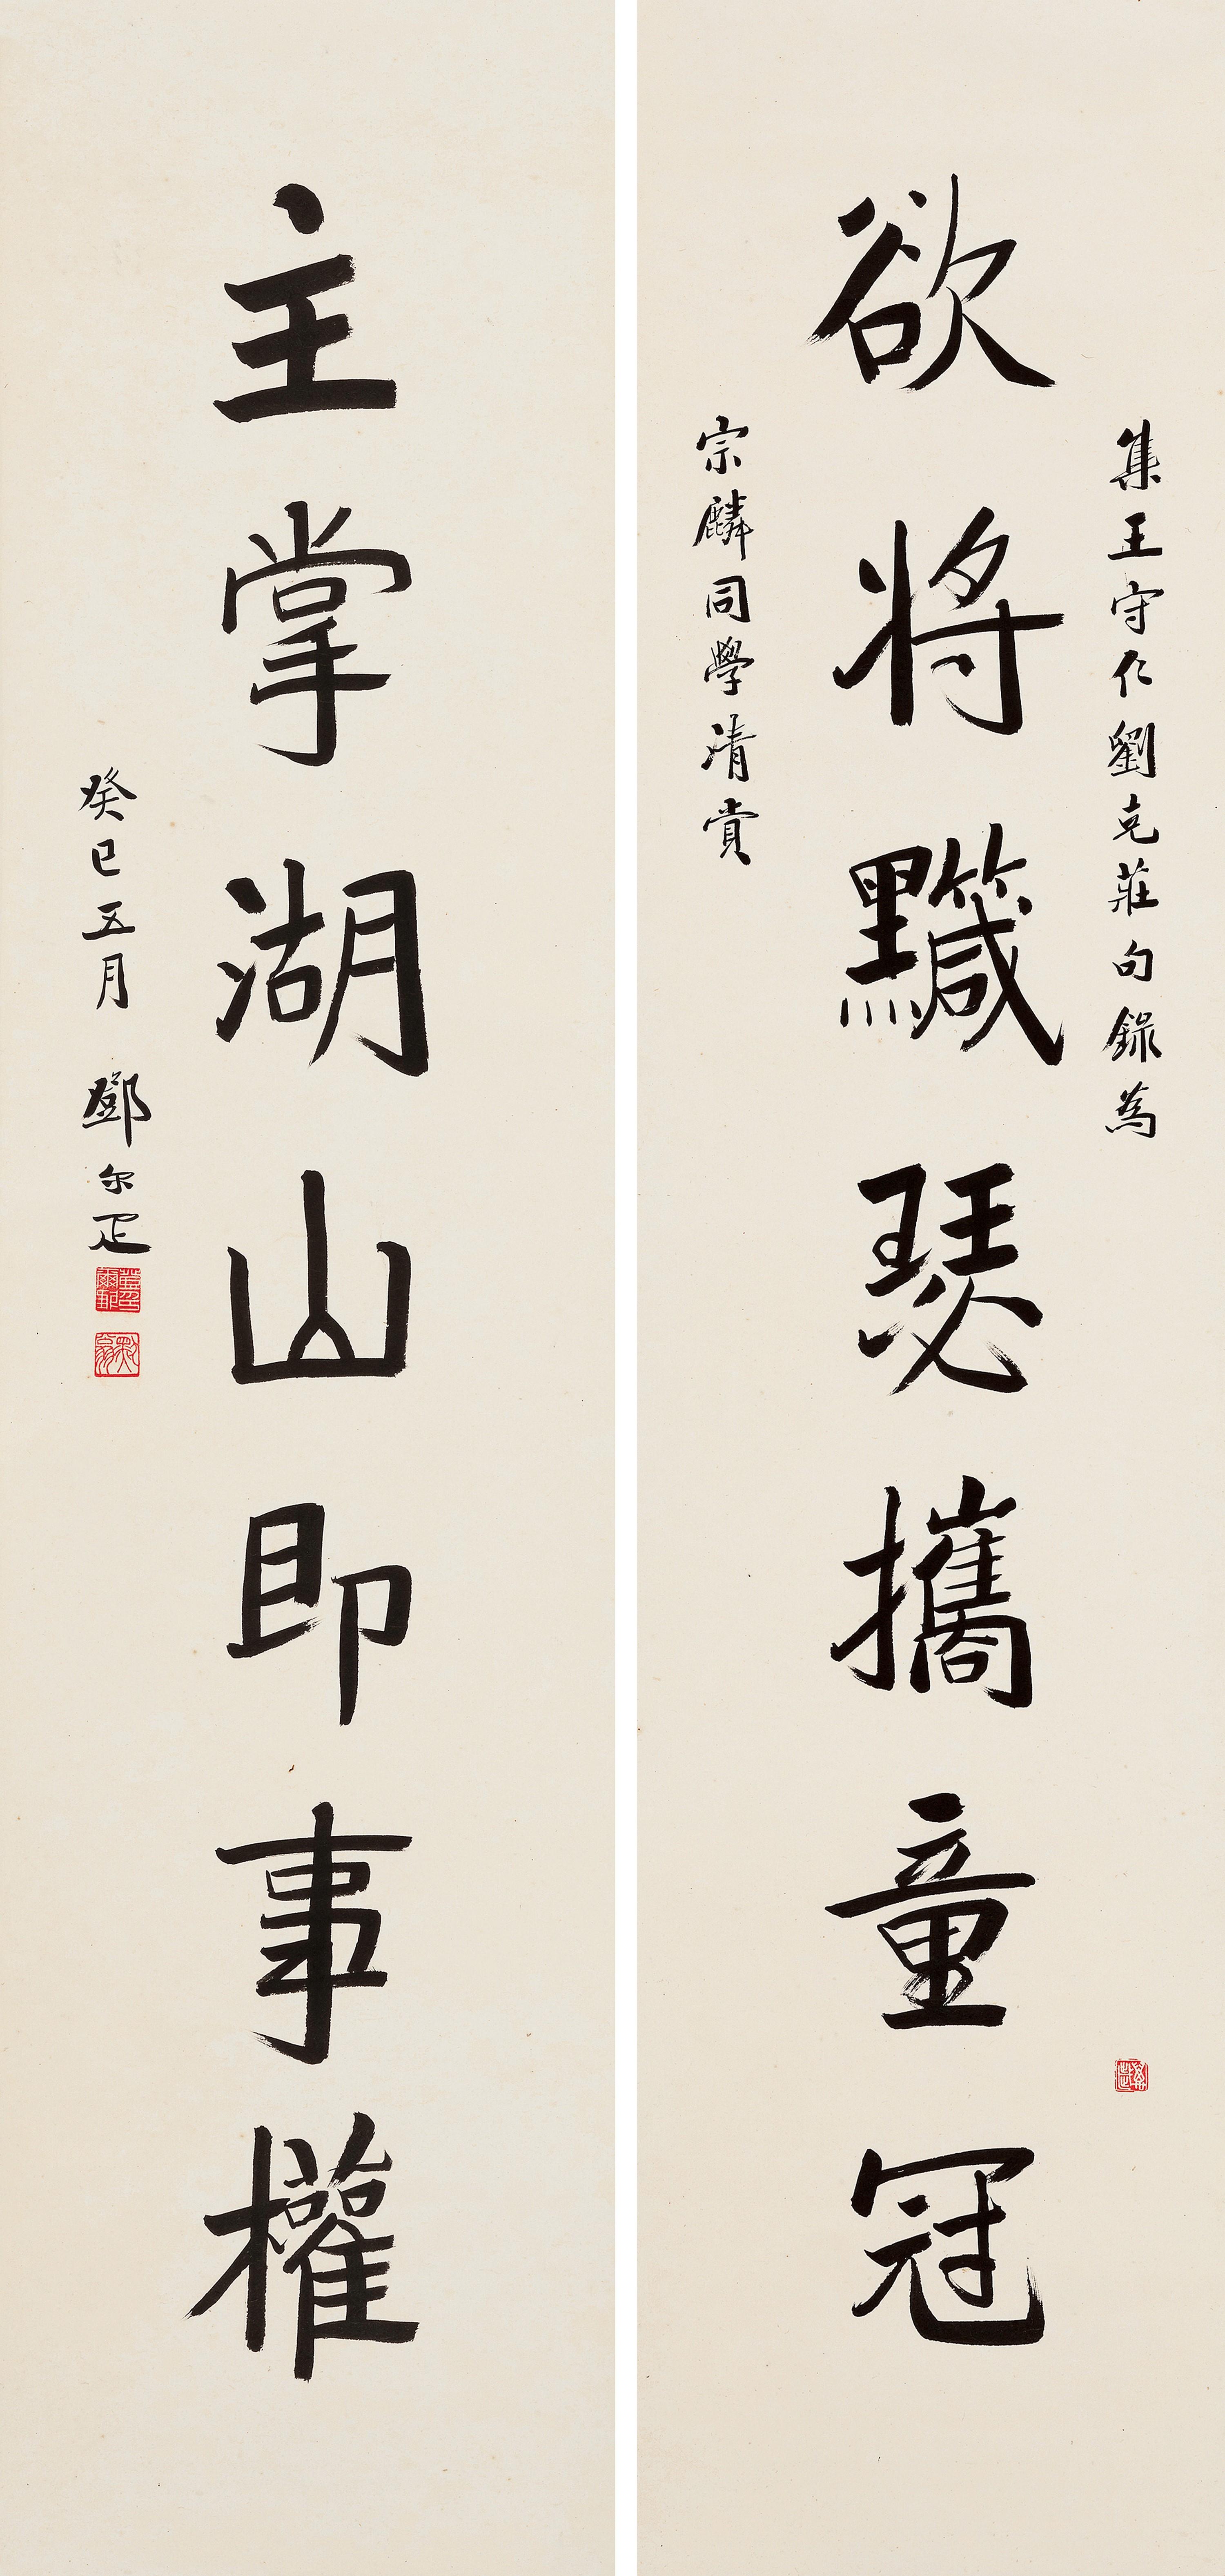 集王守仁劉克莊句錄為
欲將瑟攜童冠
宗麟同學清賞
主掌湖山即事權
癸巳五月 鄧尔疋